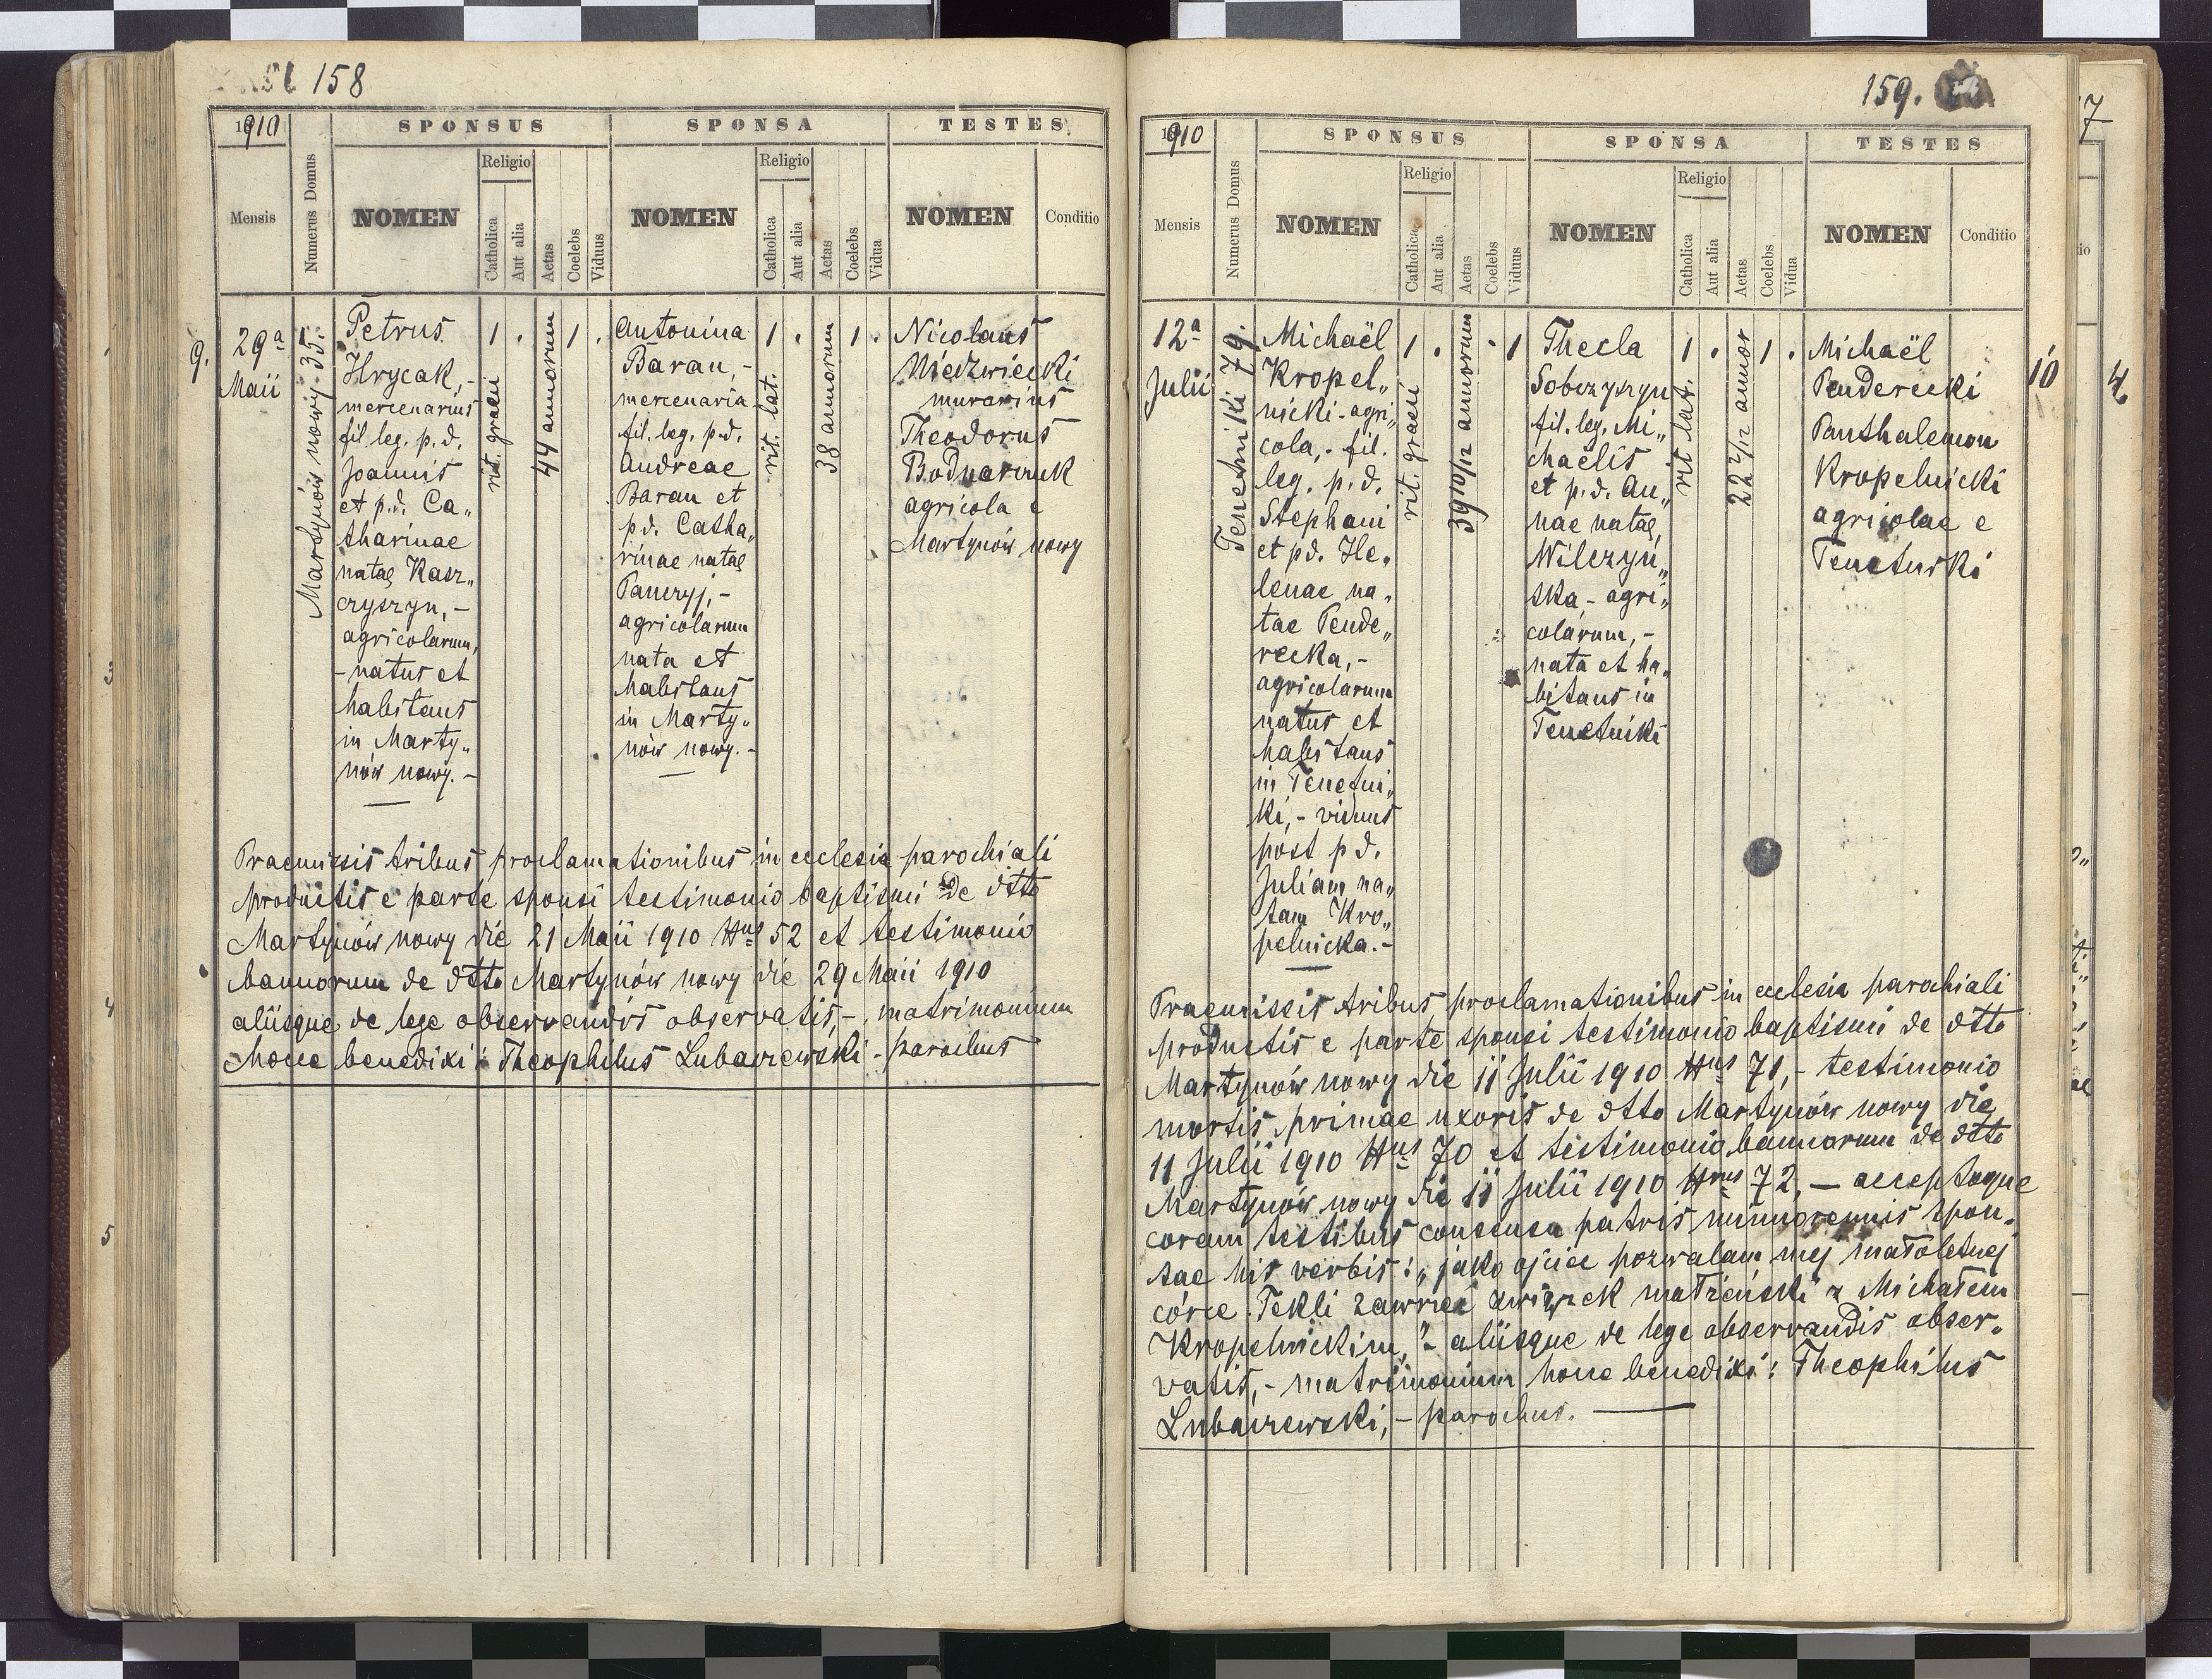 158
1910
SPONSUS
SPONSA
TESTES
Mensis
Numerus Domus
NOMEN
Religio
Catholica
Aut alia
Aetas
Coelebs
Viduus
NOMEN
Religio
Catholica
Aut alia
Aetas
Coelebs
Vidua
NOMEN
Conditio
9.
29a
Maii
Martynów nowy 35.
Petrus
Hrycak,-
mercenarius
fil. leg. p. d.
Joannis
et p. d. Ca„
tharinae
natae Kasz„
czyszyn,-
agricolarum,
- natus et
habitans
in Marty„
nów nowy. -
1
rit. graeci
.
44 annorum
1
.
Antonina
Baran,-
mercenaria
fil. leg. p. d.
Andreae
Baran et
p. d. Catha„
rinae natae
Panczyj,-
agricolarum
nata et
habitans
in Marty„
nów nowy. -
1
rit. lat.
.
38 annorum
1
.
Nicolaus
Niedzwiecki
murarius
Theodorus
Bodnarczuk
agricola e
Martynów nowy
Praemissis tribus proclamationibus in ecclesia parochiali
productis e parte sponsi testimonio baptismi de dtto
Martynów nowy die 21 Maii 1910 Nus 52 et testimonio
bannorum de dtto Martynów nowy die 29 Maii 1910
aliisque de lege observandis observatis,- matrimonium
hocce benedixi: Theophilus Lubaczewski - parochus
159.
1910
SPONSUS
SPONSA
TESTES
Mensis
Numerus Domus
NOMEN
Religio
Catholica
Aut alia
Aetas
Coelebs
Viduus
NOMEN
Religio
Catholica
Aut alia
Aetas
Coelebs
Vidua
NOMEN
Conditio
12a
Julii
Tenetniki 79.
Michaël
Kropel„
nicki - agri„
cola,- fil.
leg. p. d.
Stephani
et p d. He„
lenae na„
tae Pende„
recka,-
agricolarum
natus et
habitans
in Tenetni„
ki,- viduus
post p d.
Juliam na„
tam Kro„
pelnicka.-
1
rit. graeci
.
39 10/12 annorum
.
1
Thecla
Sobczyszyn
fil. leg. Mi„
chaëlis
et p. d. An„
nae natae
Wilczyń„
ska,- agri„
colarum,-
nata et ha„
bitans in
Tenetniki
1
rit lat.
.
22 2/12 annor
1
.
Michaël
Penderecki
Panthalemon
Kropelnicki
agricolae e
Tenetniki
10
Praemissis tribus proclamationibus in ecclesia parochiali
productis e parte sponsi testimonio baptismi de dtto
Martynów nowy die 11 Julii 1910 Nus 71,- testimonio
mortis primae uxoris de dtto Martynów nowy die
11 Julii 1910 Nus 70 et testimonio bannorum de dtto
Martynów nowy die 11 Julii 1910 Nus 72,- acceptoque
coram testibus consensu patris minorennis spon„
sae his verbis: „jako ojciec pozwalam mej małoletniej
córce Tekli zawrzeć związek małżeński z Michałem
Kropelnickim,"- aliisque de lege observandis obser„
vatis,- matrimonium hocce benedixi: Theophilus
Lubaczewski,- parochus.
7
4
3
4
5